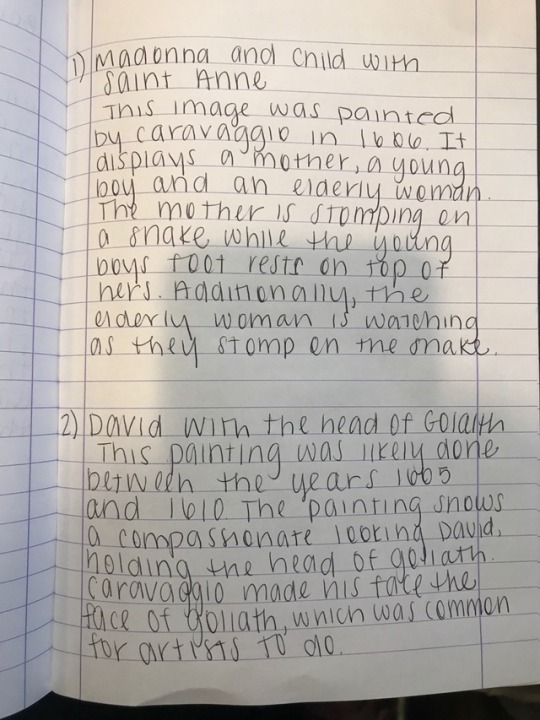 1) Madonna and Child with
Saint Anne
This image was painted
by caravaggio in 1606. It
displays a mother, a young
boy and an elderly woman.
The mother is stomping on
a snake while the young
boys foot rests on top of
hers. Additionally, the
elderly woman is watching
as they stomp on the snake.
2) David with the head of Golaith
This painting was likely done
between the years 1605
and 1610 The painting shows
a compassionate looking David,
holding the head of goliath.
caravaggio made his face the
face of Goliath, which was common
for artists to do.